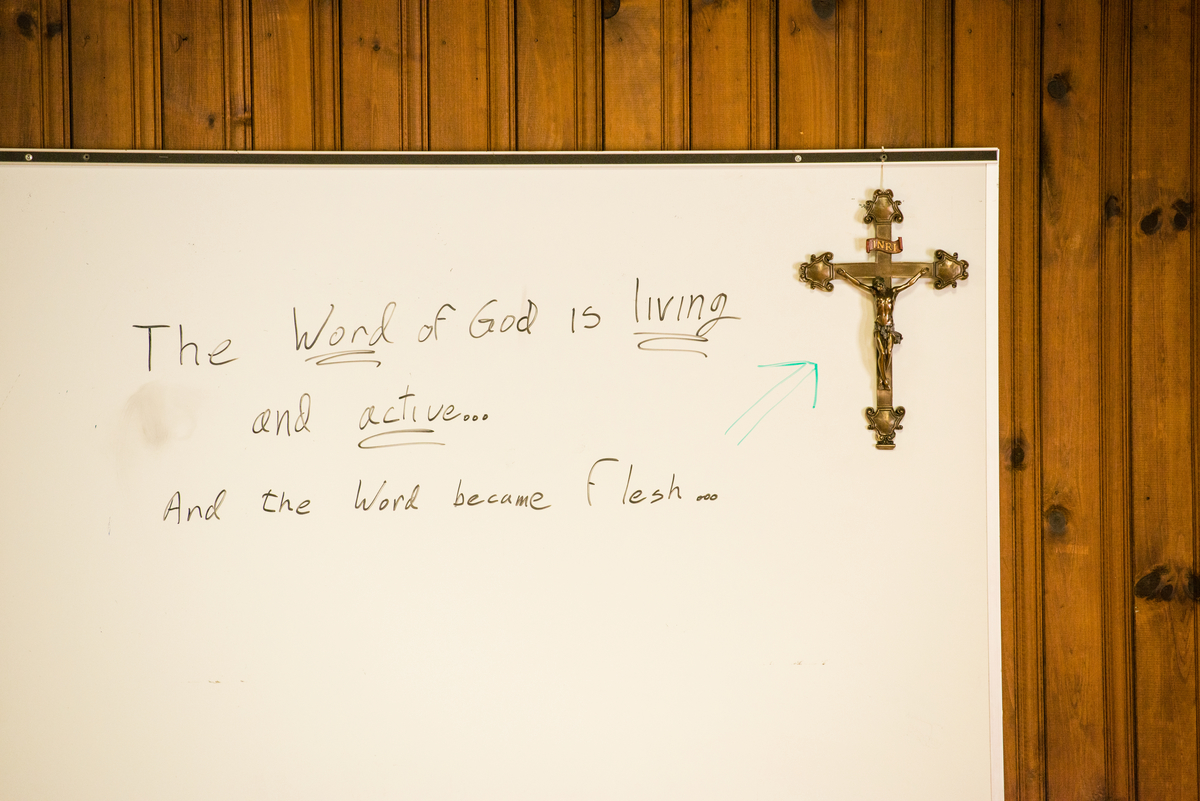 INRI
The Word of God is living
and active...
And the Word became Flesh...